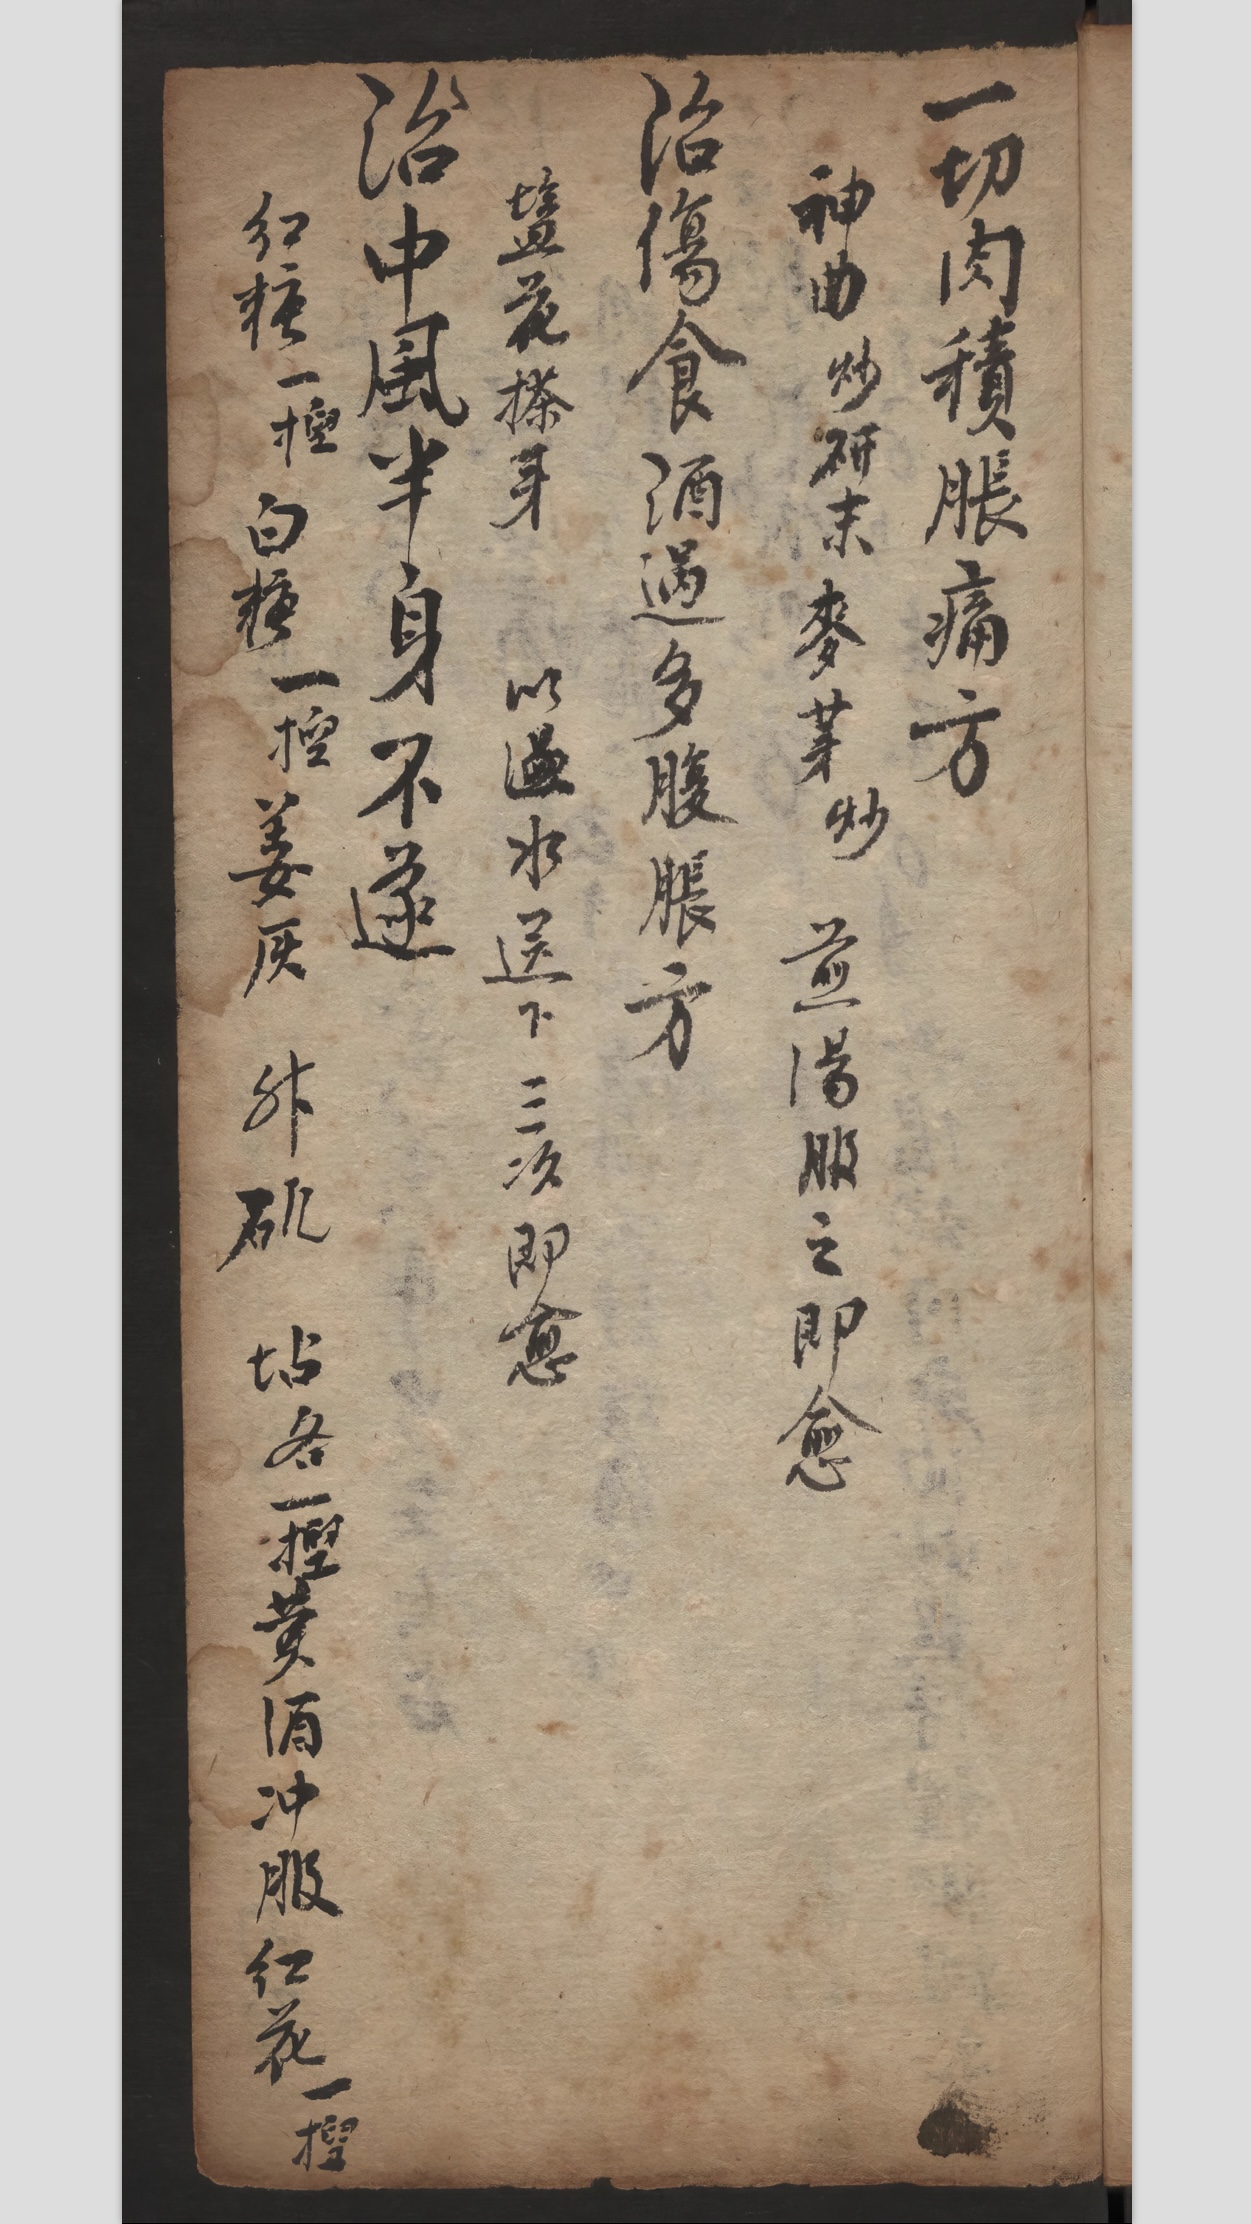 一切肉積脹痛方
神曲炒研末麥芽炒 煎湯服之即愈
治傷食酒過多腹脹方
塩花搽牙 以溫水送下三次即愈
治中風半身不遂
紅糖一 白糖一 姜灰 各一 黃酒冲服紅花一